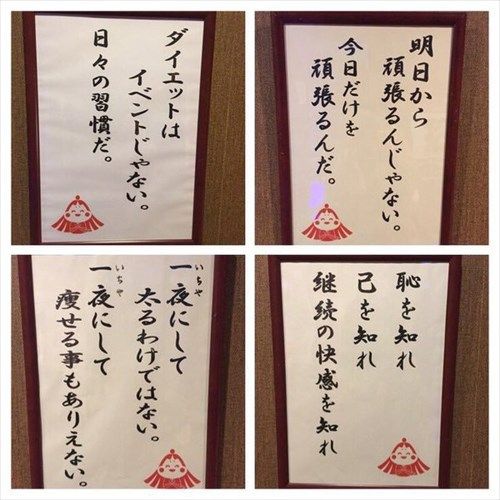 ダイエットは
イベントじゃない。
日々の習慣だ。
明日から
頑張るんじゃない。
今日だけを
頑張るんだ。
いちや
一夜にして
太るわけではない。
いちや
一夜にして
痩せる事もありえない。
恥を知れ
己を知れ
継続の快感を知れ